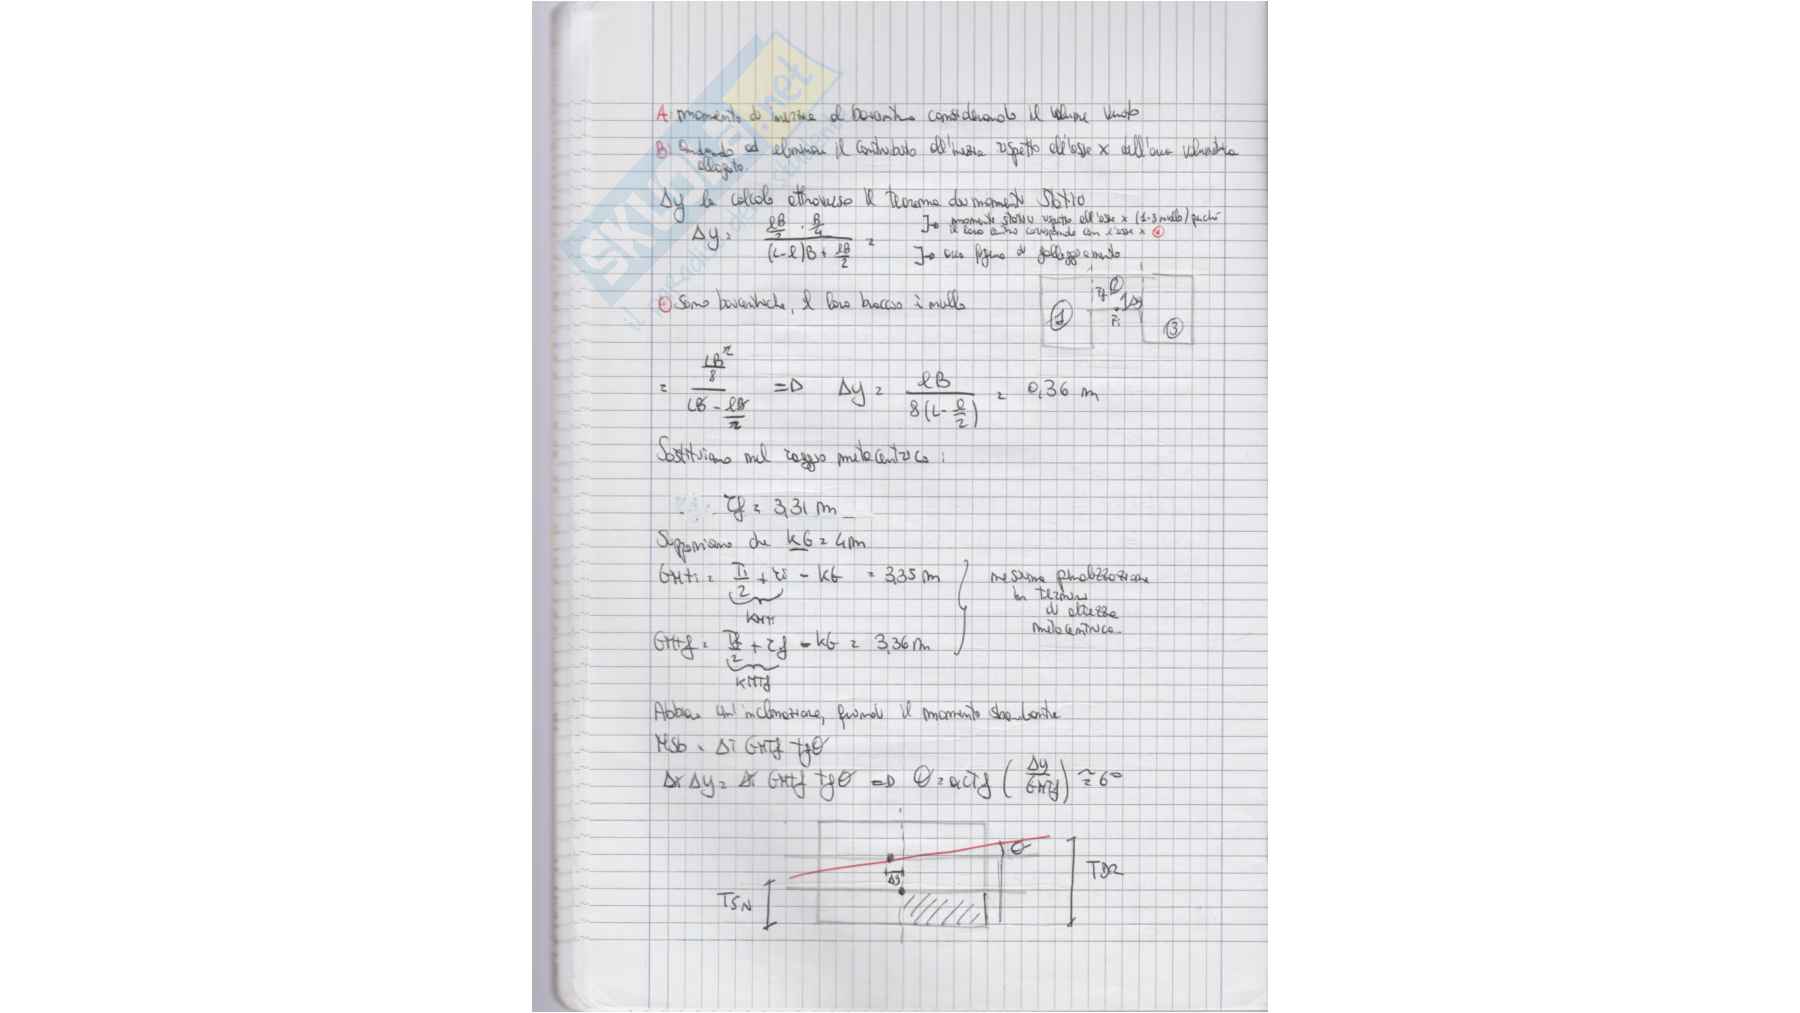 A: momento di inerzia al baricentro considerando il volume vuoto
B: andando ad eliminare il contributo all'inerzia rispetto all'asse x dell'area
allagata.
Δy lo calcolo attraverso il teorema dei momenti statici
Δy = (lB/2 · B/4) / ((L-l)B + lB/2) =
]→ momento statico rispetto all'asse x (1-3 nullo) perché
il loro centro corrisponde con l'asse x
]→ area figura di galleggiamento
sono baricentriche, il loro braccio è nullo
1 2 3
Δy
= (LB²/8) / (LB - lB/2) => Δy = lB / 8(L - l/2) = 0,36 m
Sostituiamo nel raggio metacentrico:
rf = 3,31 m
Supponiamo che KG = 4m
GMti = Ti/2 + ri - KG = 3,35 m
nessuna penalizzazione
in termini
di altezza
metacentrica
GMtf = Tf/2 + rf - KG = 3,36 m
KMTf
Abbiamo un'inclinazione, quindi il momento sbandante
MSb = Δi GMTf tgθ
Δi Δy = Δi GMTf tgθ => θ = arctg (Δy/GMTf) ≈ 6°
θ
TDR
Δy
TSN
SKUOLA.net